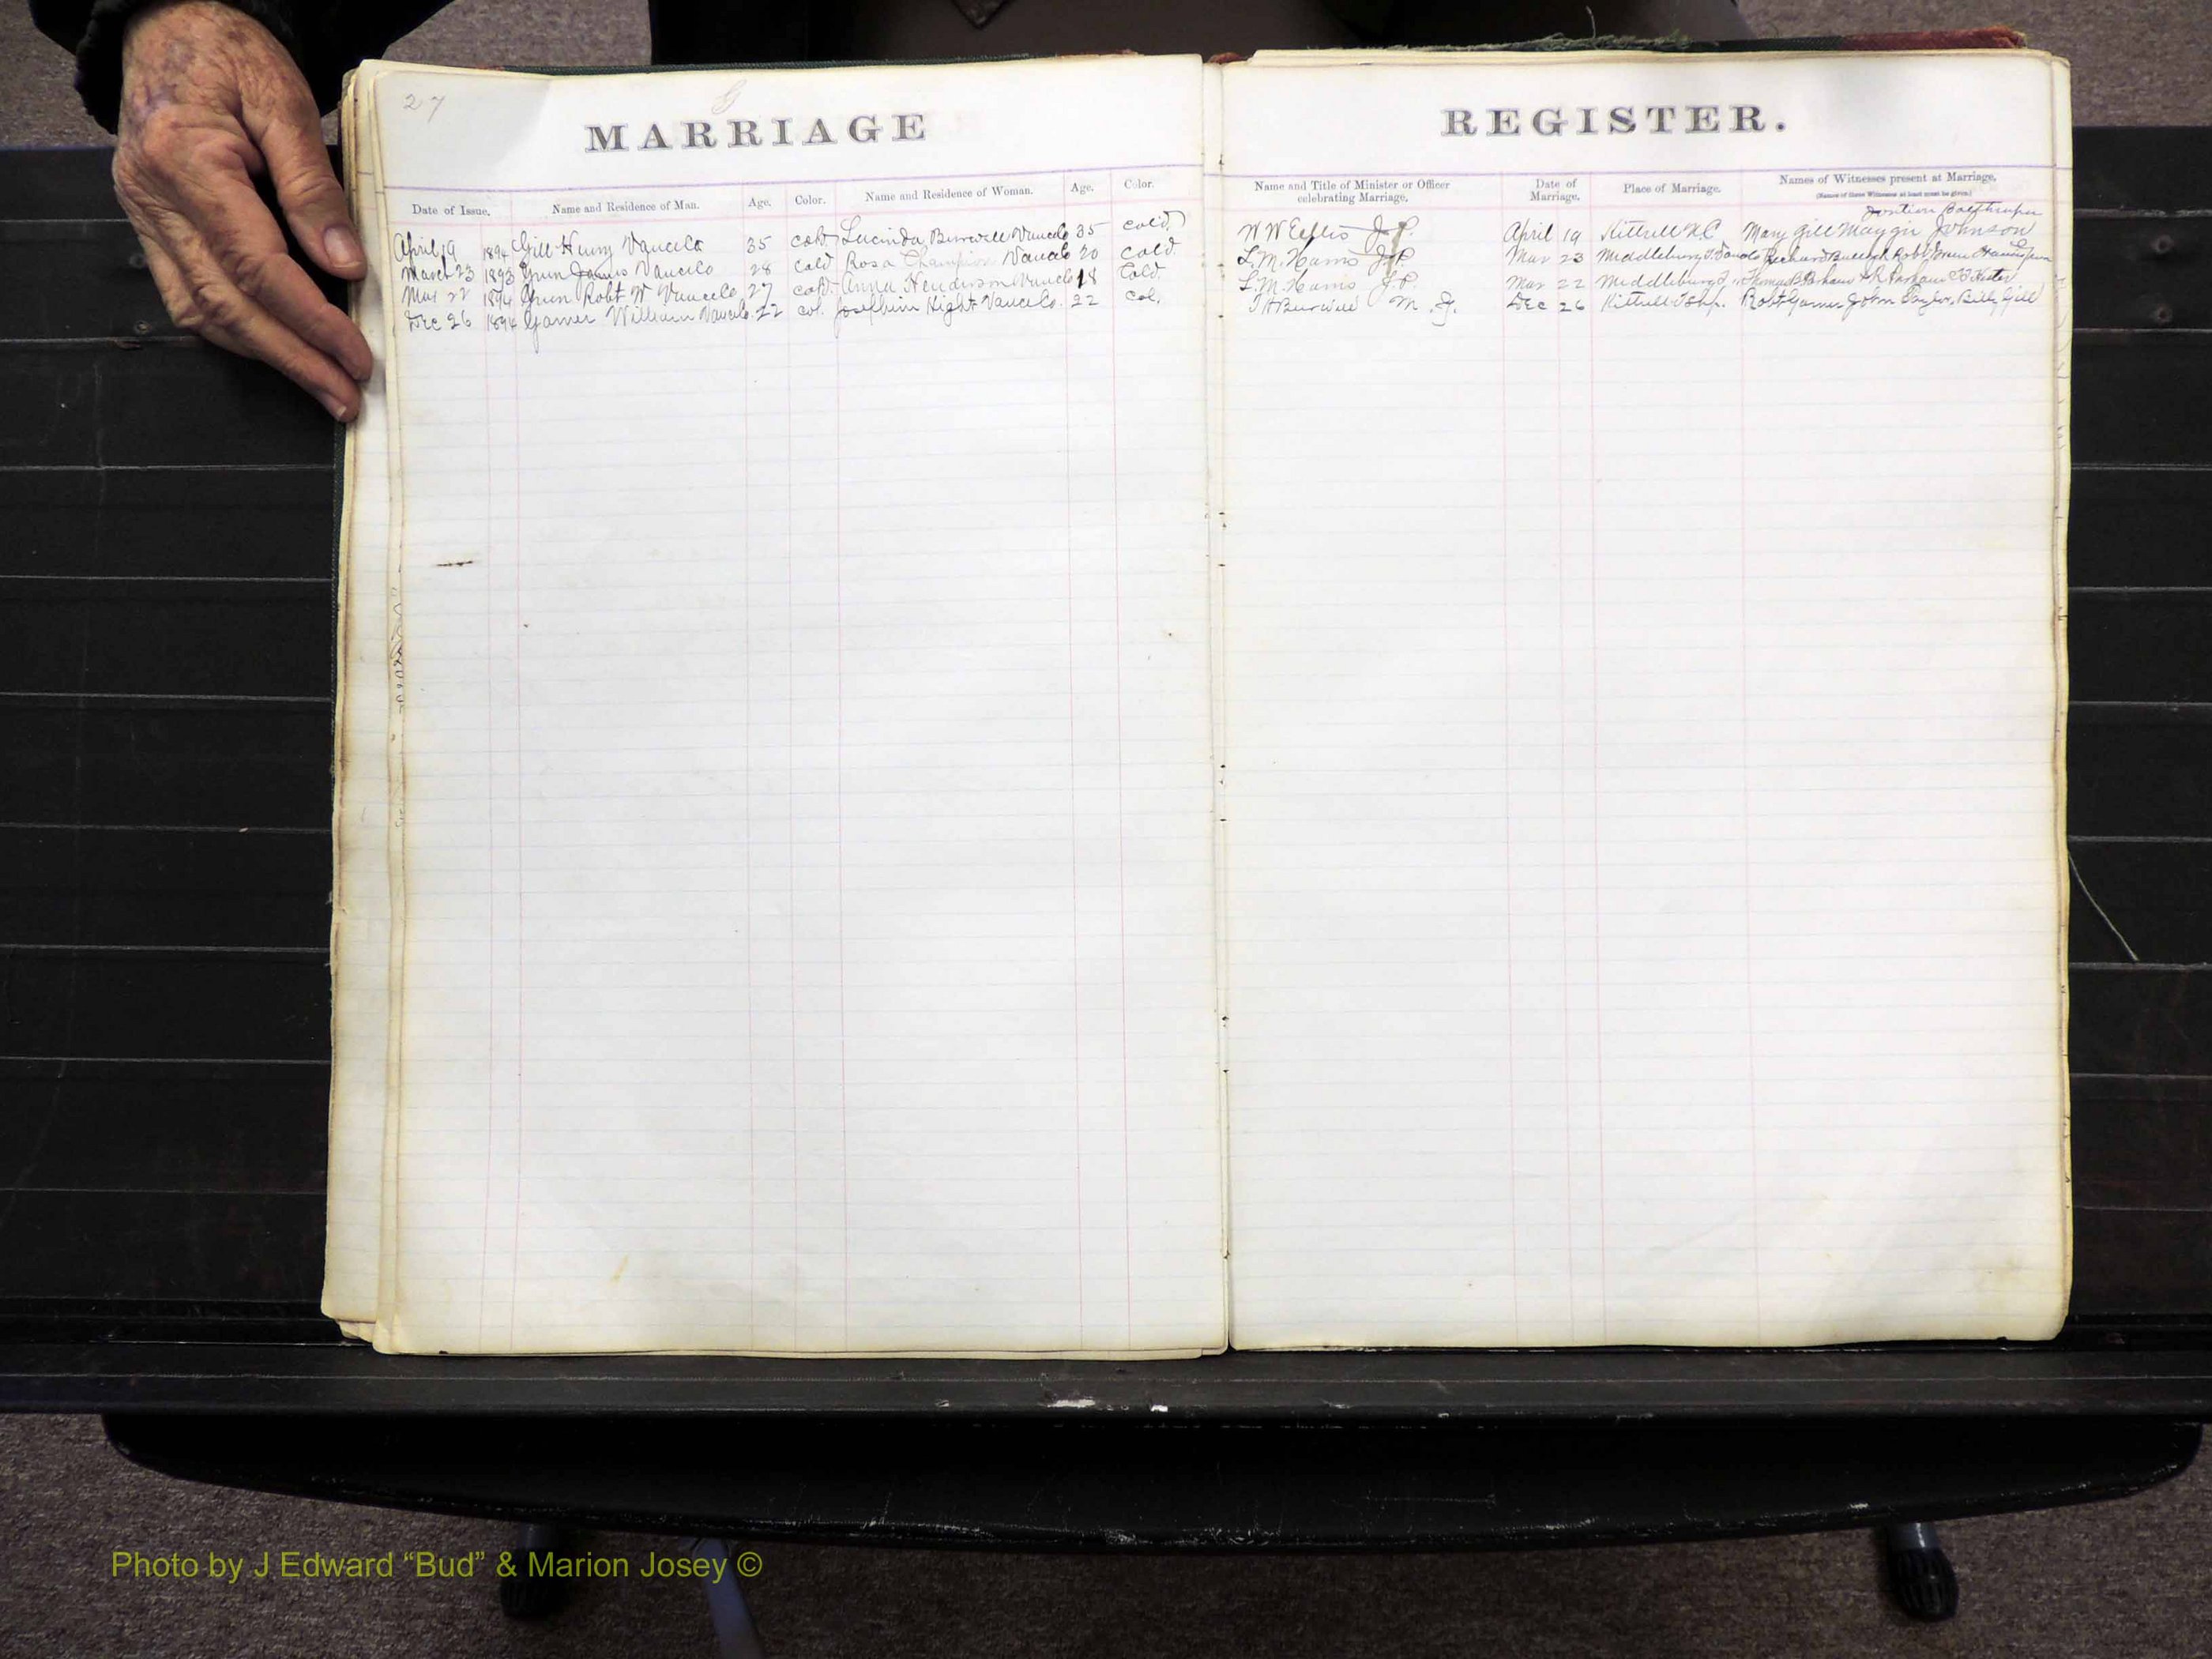 27
G
MARRIAGE REGISTER.
Date of Issue. Name and Residence of Man. Age. Color. Name and Residence of Woman. Age. Color. Name and Title of Minister or Officer celebrating Marriage. Date of Marriage. Place of Marriage. Names of Witnesses present at Marriage.
(Names of three Witnesses at least must be given.)
April 19 1894 Gill Henry Vance Co 35 cold Lucinda Burwell Vance Co 35 cold J.P. April 19 Kittrell N.C Mary Gill Johnson
March 23 1893 James Vance Co 28 Cold Rosa Champion Vance Co 20 cold L.M. J.P. Mar 23 Middleburg
Mar 22 1894 Robt W Vance Co 27 cold Anna Henderson Vance Co 18 Cold. L.M. J.P. Mar 22 Middleburg
Dec 26 1894 Garner William Vance Co. 22 col. Hight Vance Co. 22 col. Burwell M.G. Dec 26 Kittrell Tshp. Robt Garner John Billy Gill
Photo by J Edward “Bud” & Marion Josey ©